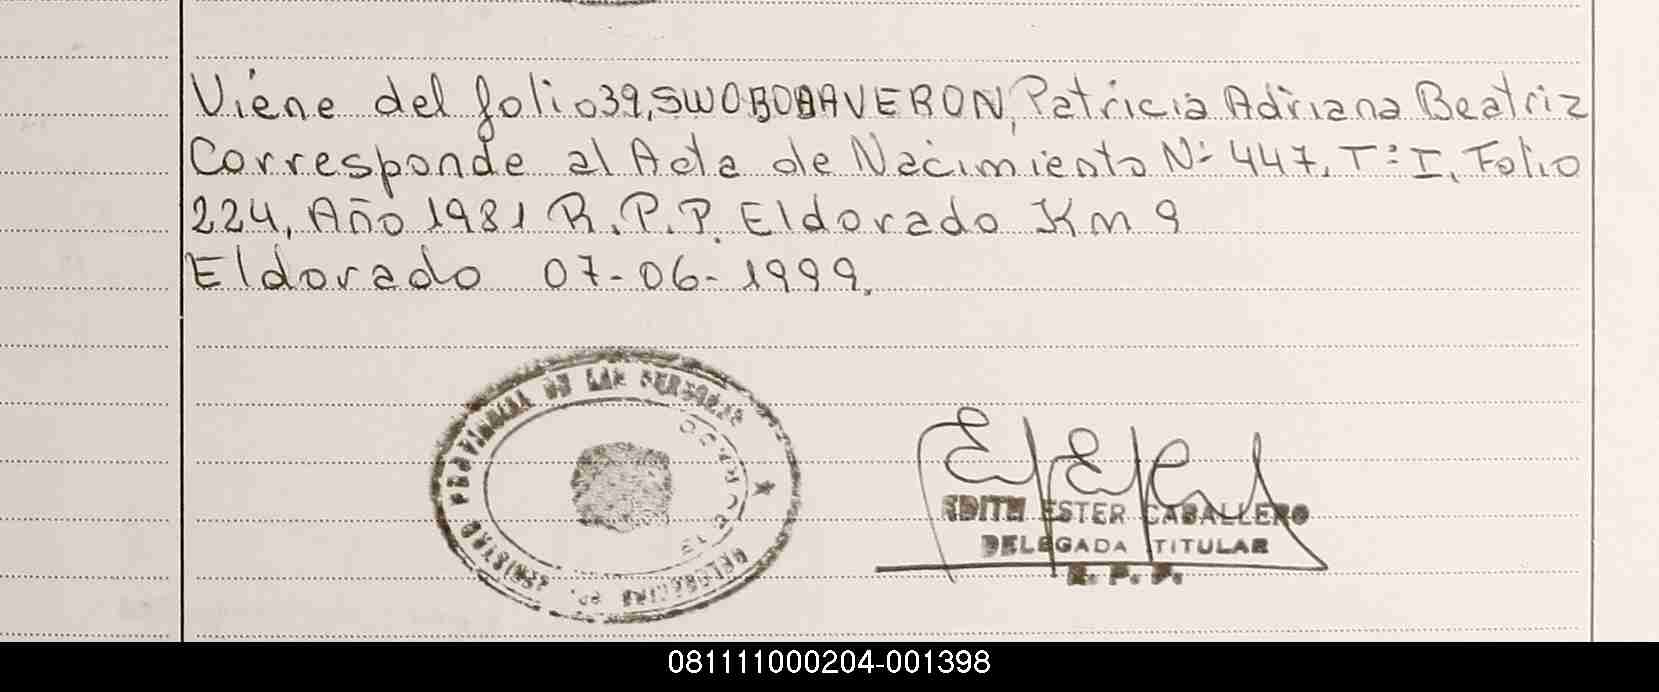 Viene del folio 39, SWOBODA VERON, Patricia Adriana Beatriz
Corresponde al Acta de Nacimiento Nº 447, Tº I, Folio
224, Año 1981 R.P.P. Eldorado Km 9
Eldorado 07-06-1999.
REGISTRO PROVINCIAL DE LAS PERSONAS
ELDORADO
EDITH ESTER CABALLERO
DELEGADA TITULAR
R. P. P.
081111000204-001398